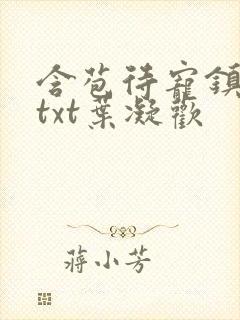 含苞待寵鎮
txt葉凝歡
蔣小芳